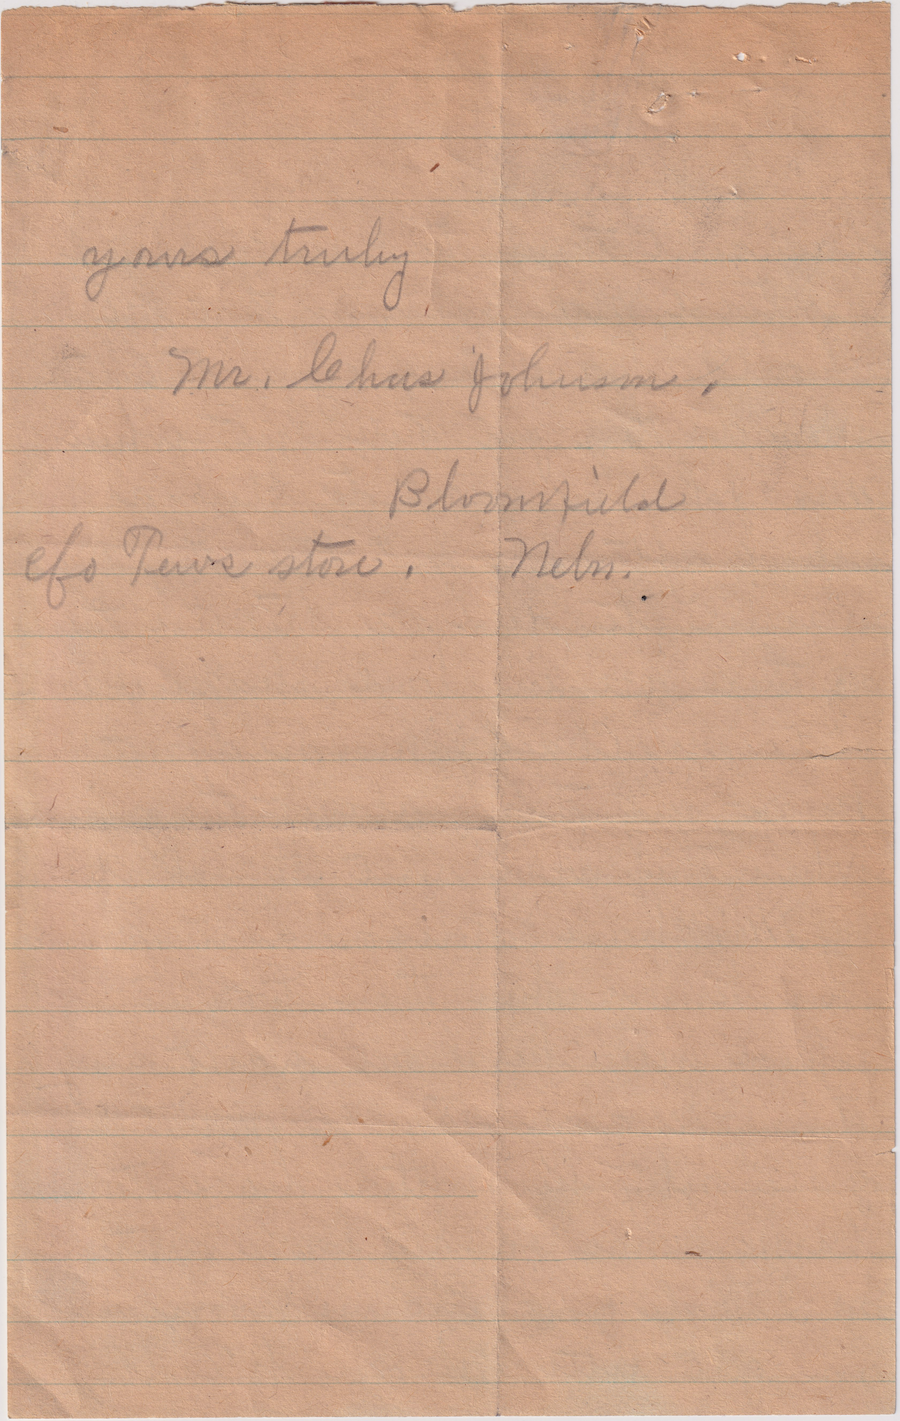 yours truly
Mr. Chas Johnson.
Bloomfield
c/o Tews store. Nebr.